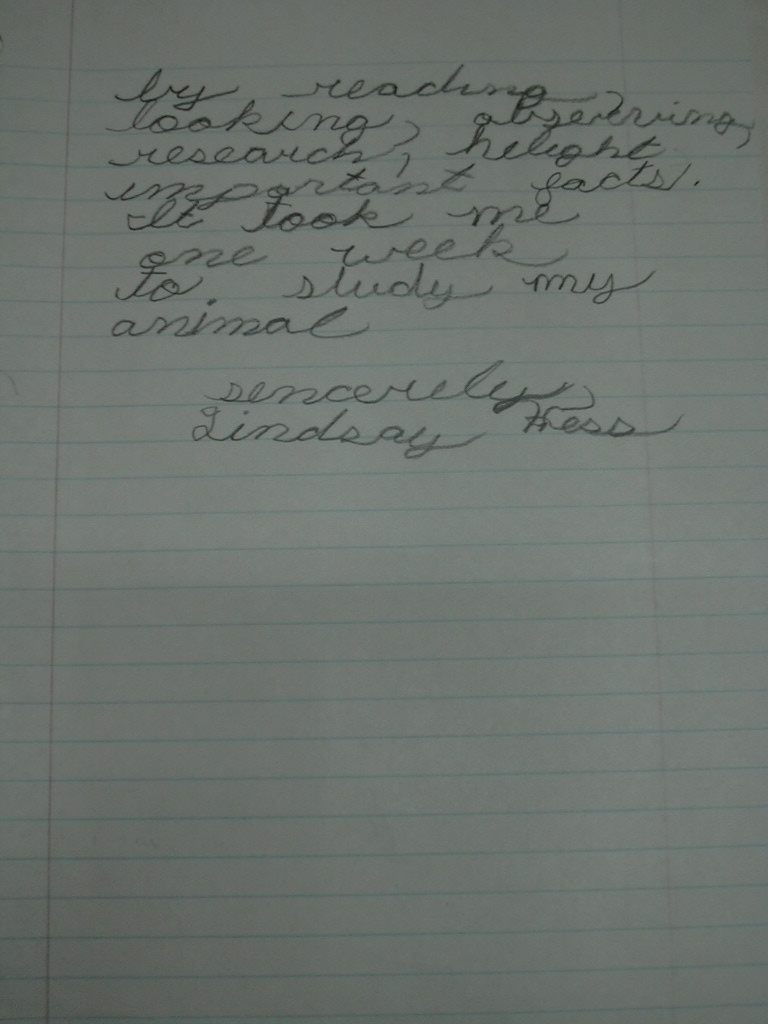 by reading,
looking, observing,
research, helight
important facts.
It took me
one week
to study my
animal
sencerely,
Lindsay